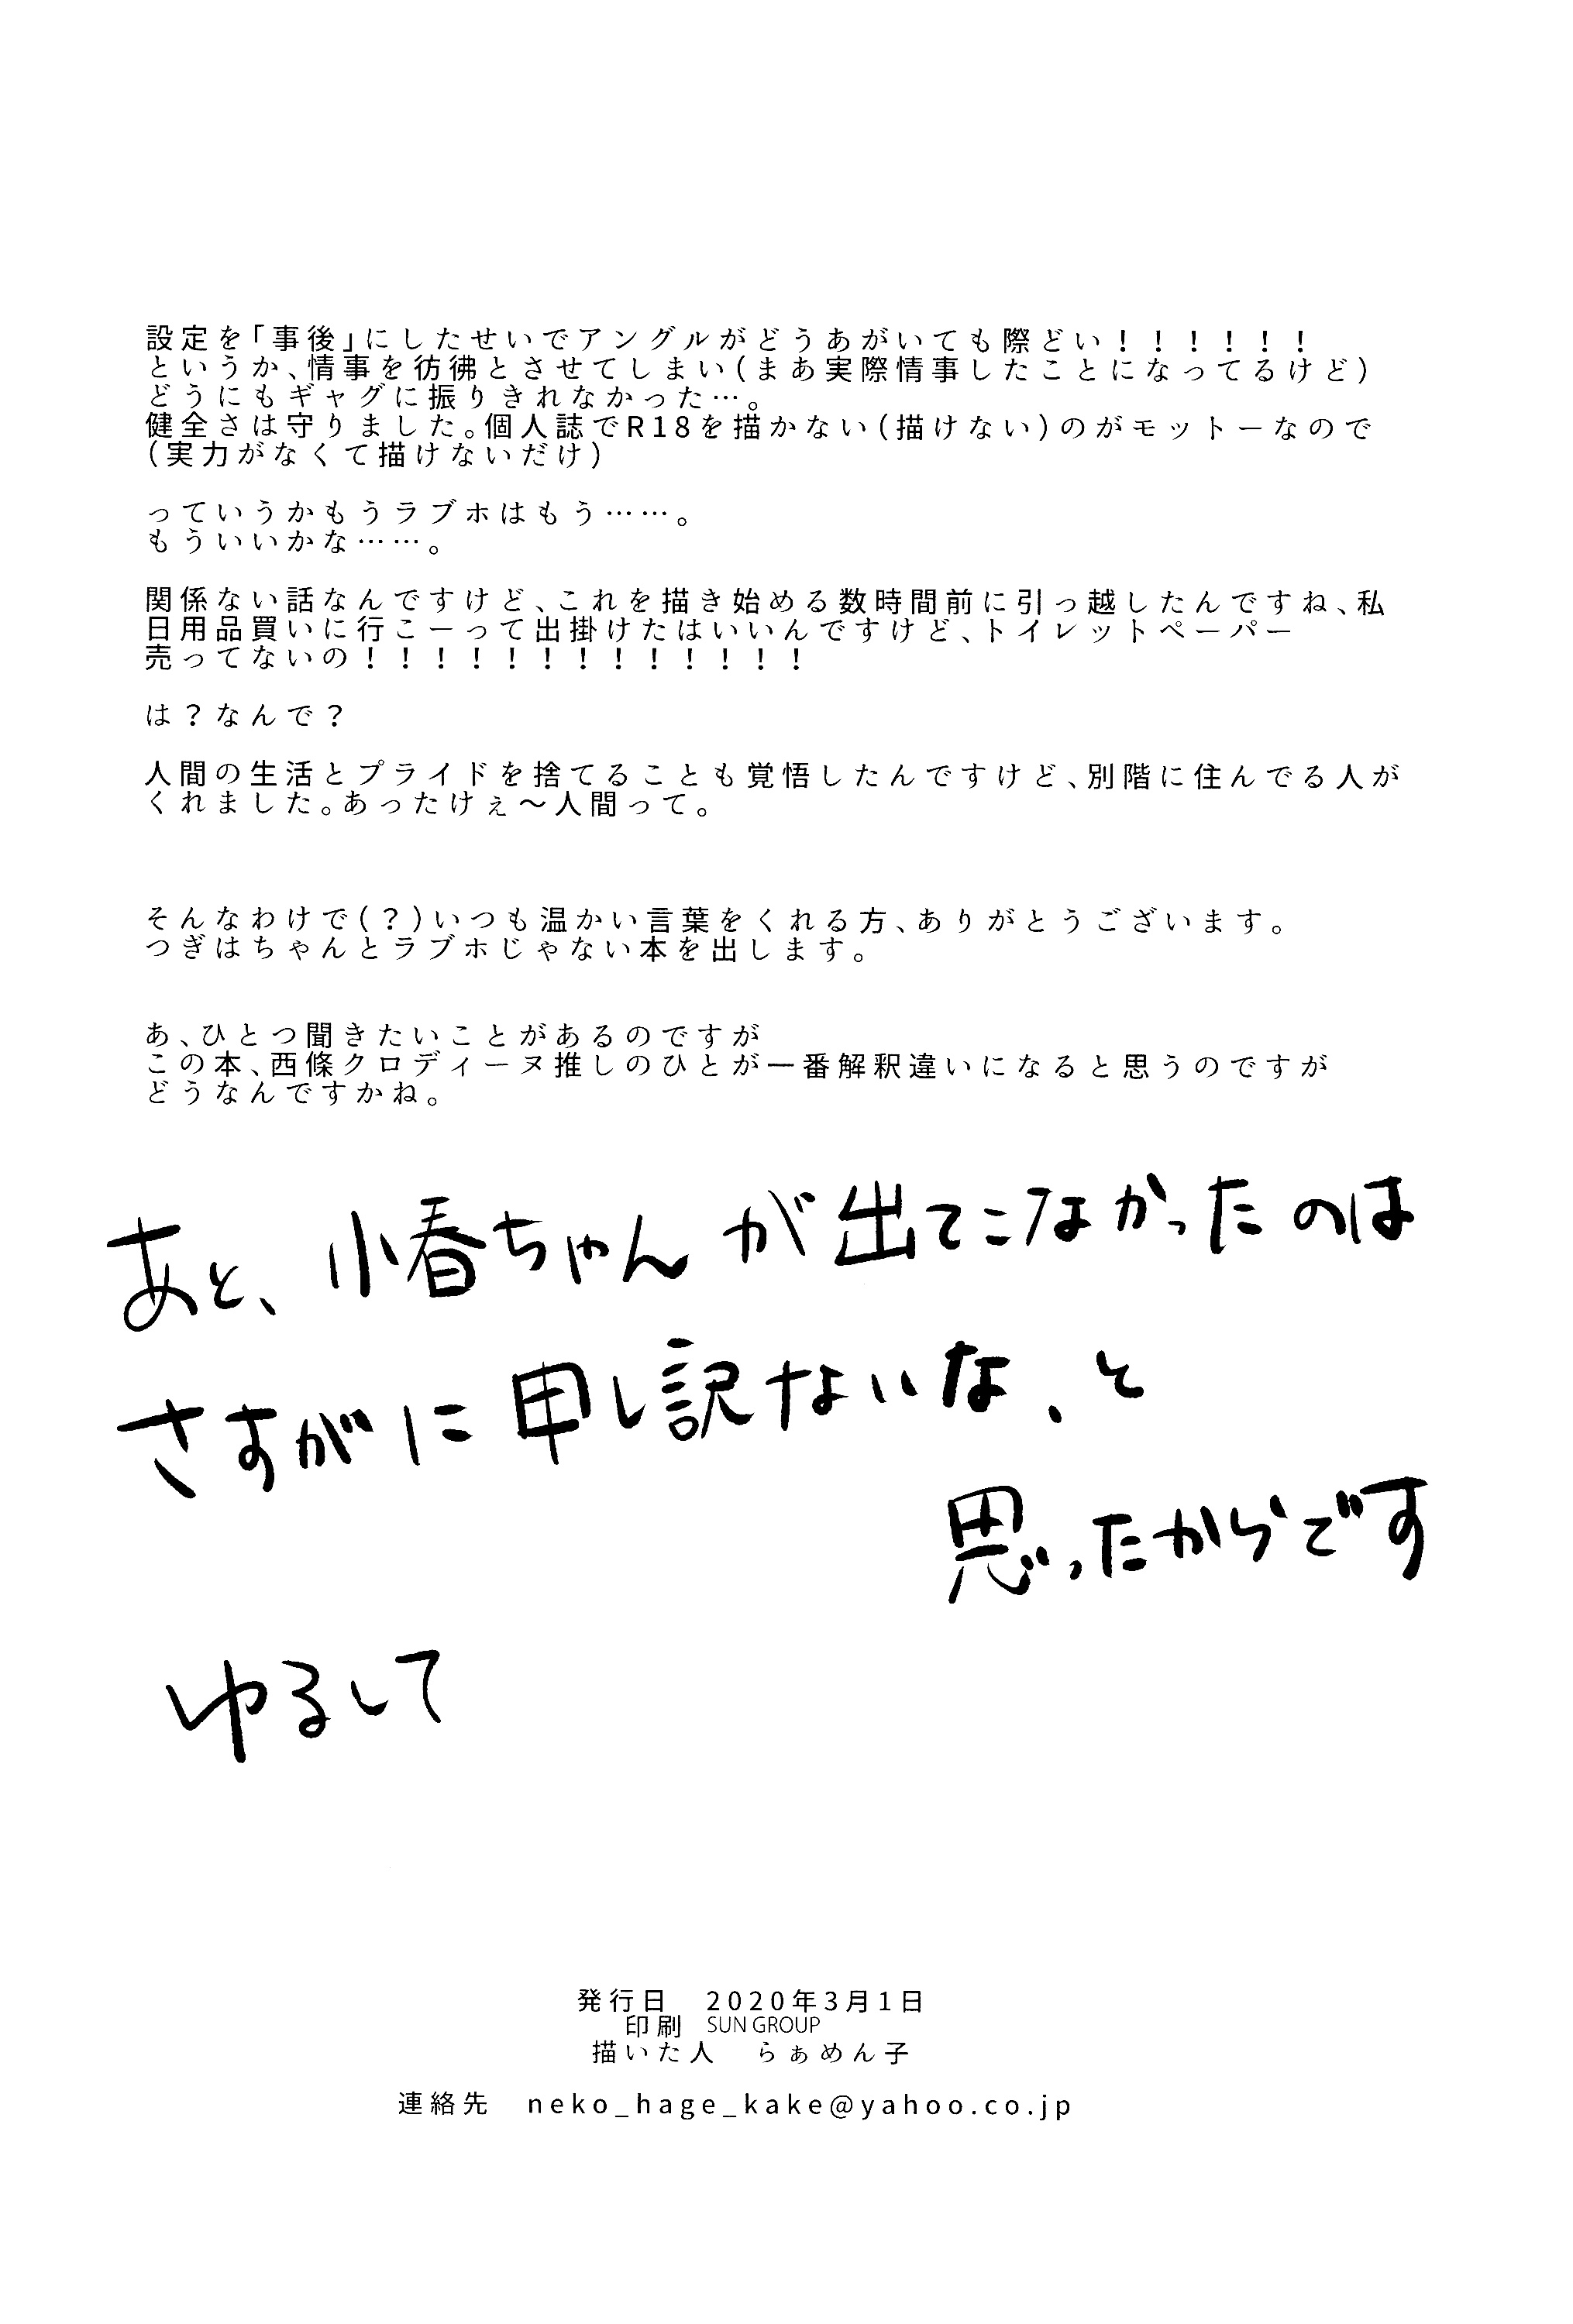 設定を「事後」にしたせいでアングルがどうあがいても際どい！！！！！！
というか、情事を彷彿とさせてしまい(まあ実際情事したことになってるけど)
どうにもギャグに振りきれなかった…。
健全さは守りました。個人誌でR18を描かない(描けない)のがモットーなので
(実力がなくて描けないだけ)
っていうかもうラブホはもう……。
もういいかな……。
関係ない話なんですけど、これを描き始める数時間前に引っ越したんですね、私
日用品買いに行こーって出掛けたはいいんですけど、トイレットペーパー
売ってないの！！！！！！！！！！！！！
は？なんで？
人間の生活とプライドを捨てることも覚悟したんですけど、別階に住んでる人が
くれました。あったけぇ～人間って。
そんなわけで(？)いつも温かい言葉をくれる方、ありがとうございます。
つぎはちゃんとラブホじゃない本を出します。
あ、ひとつ聞きたいことがあるのですが
この本、西條クロディーヌ推しのひとが一番解釈違いになると思うのですが
どうなんですかね。
あと、小春ちゃんが出てこなかったのは
さすがに申し訳ないな、と
思ったからです
ゆるして
発行日　2020年3月1日
印刷　SUN GROUP
描いた人　らぁめん子
連絡先　neko_hage_kake@yahoo.co.jp